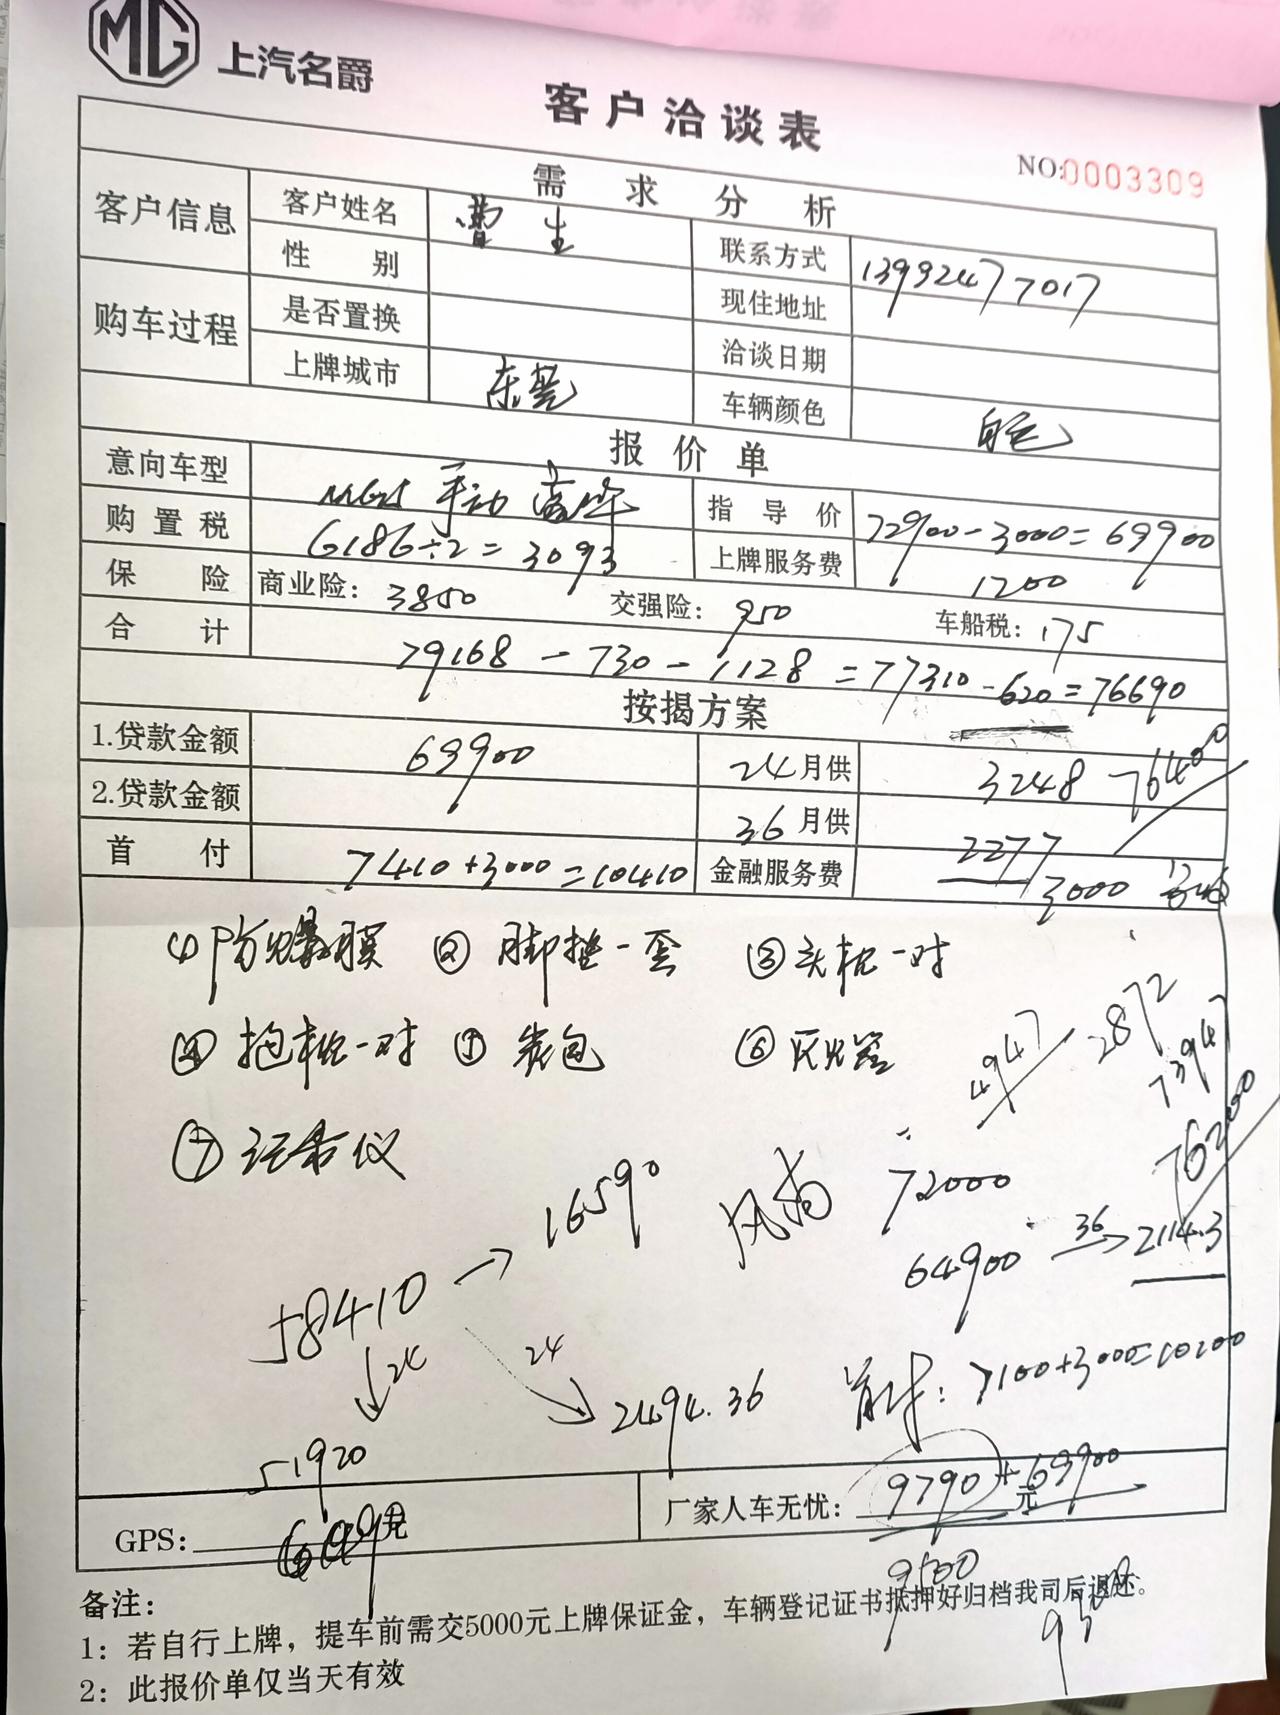 MG 上汽名爵
客户洽谈表
NO:0003309
需求分析
客户信息
客户姓名 曹生
联系方式 13992477017
性别
现住地址
购车过程
是否置换
洽谈日期
上牌城市 东莞
车辆颜色 白色
报价单
意向车型 MG5 手动豪华
指导价 72900-3000=69900
购置税 6186÷2=3093
上牌服务费 1200
保险 商业险: 3850 交强险: 950 车船税: 175
合计 79168-730-1128=77310-620=76690
按揭方案
1.贷款金额 69900
24月供 3248 76400
2.贷款金额
36月供 2277
首付 7410+3000=10410
金融服务费 3000
①防爆膜 ②脚垫一套 ③头枕一对
④抱枕一对 ⑤ 包 ⑥灭火器
4947 2872
73947
⑦记录仪
76200
16590 72000
64900 36→ 2114.3
58410
24 24
2494.36 首付: 7100+3000=10200
51920
GPS: 元
厂家人车无忧: 9790+69900 元
9500
备注:
1:若自行上牌，提车前需交5000元上牌保证金，车辆登记证书抵押好归档我司后退还。
2:此报价单仅当天有效